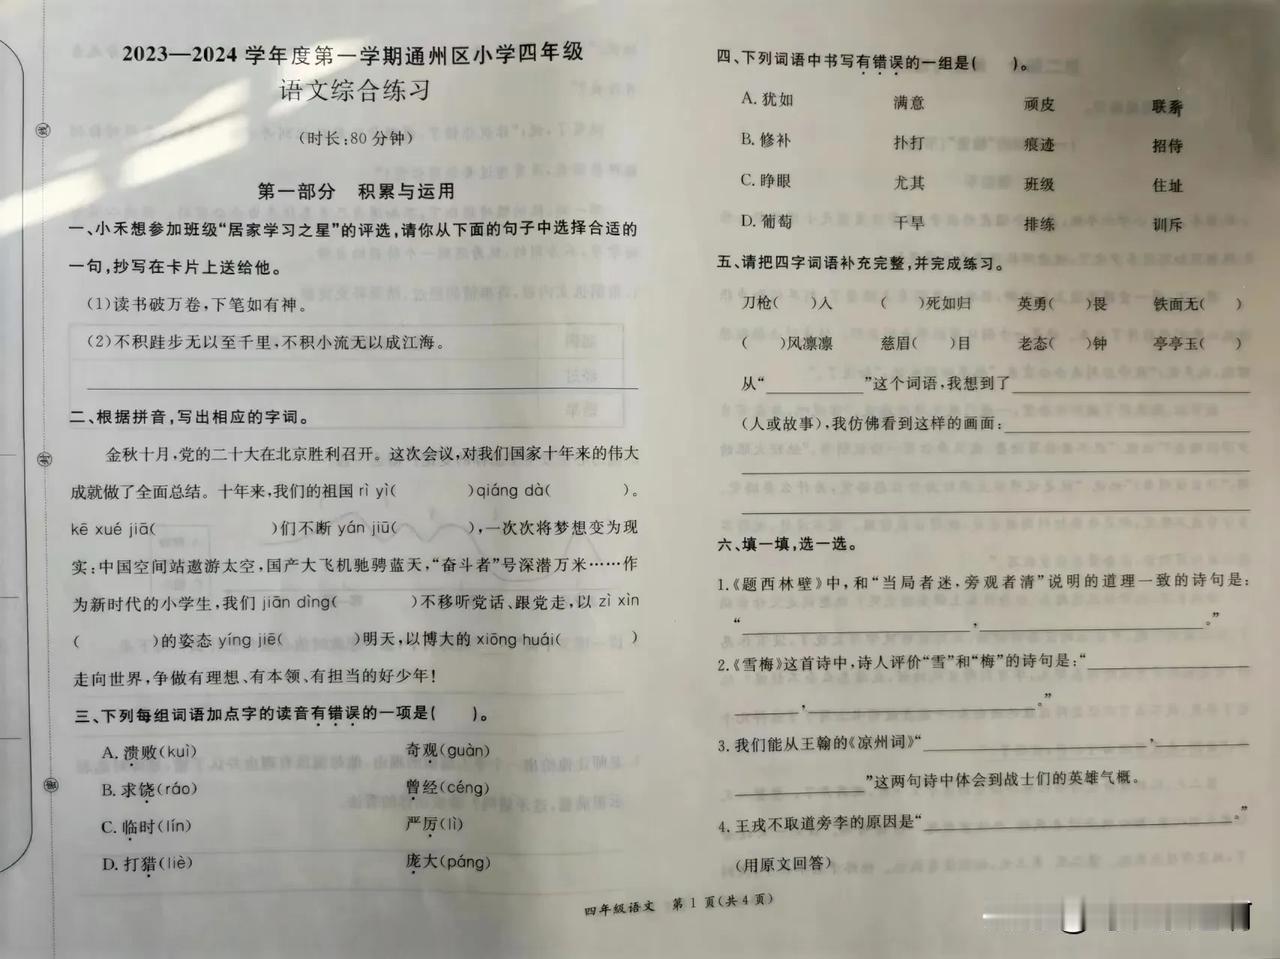 2023—2024学年度第一学期通州区小学四年级
语文综合练习
(时长:80分钟)
第一部分 积累与运用
一、小禾想参加班级“居家学习之星”的评选,请你从下面的句子中选择合适的
一句,抄写在卡片上送给他。
(1)读书破万卷,下笔如有神。
(2)不积跬步无以至千里,不积小流无以成江海。
二、根据拼音,写出相应的字词。
金秋十月,党的二十大在北京胜利召开。这次会议,对我们国家十年来的伟大
成就做了全面总结。十年来,我们的祖国rì yì( )qiáng dà( )。
kē xué jiā( )们不断yán jiū( ),一次次将梦想变为现
实:中国空间站遨游太空,国产大飞机驰骋蓝天,“奋斗者”号深潜万米……作
为新时代的小学生,我们jiān dìng( )不移听党话、跟党走,以zì xìn
( )的姿态yíng jiē( )明天,以博大的xiōng huái( )
走向世界,争做有理想、有本领、有担当的好少年!
三、下列每组词语加点字的读音有错误的一项是( )。
A.溃败(kuì) 奇观(guàn)
B.求饶(ráo) 曾经(céng)
C.临时(lín) 严厉(lì)
D.打猎(liè) 庞大(páng)
四、下列词语中书写有错误的一组是( )。
A.犹如 满意 顽皮 联系
B.修补 扑打 痕迹 招侍
C.睁眼 尤其 班级 住址
D.葡萄 干旱 排练 训斥
五、请把四字词语补充完整,并完成练习。
刀枪( )人 ( )死如归 英勇( )畏 铁面无( )
( )风凛凛 慈眉( )目 老态( )钟 亭亭玉( )
从“ ”这个词语,我想到了
(人或故事),我仿佛看到这样的画面:
六、填一填,选一选。
1.《题西林壁》中,和“当局者迷,旁观者清”说明的道理一致的诗句是:
“ , 。”
2.《雪梅》这首诗中,诗人评价“雪”和“梅”的诗句是:“
, 。”
3.我们能从王翰的《凉州词》“ ,
”这两句诗中体会到战士们的英雄气概。
4.王戎不取道旁李的原因是“ 。”
(用原文回答)
四年级语文 第1页(共4页)